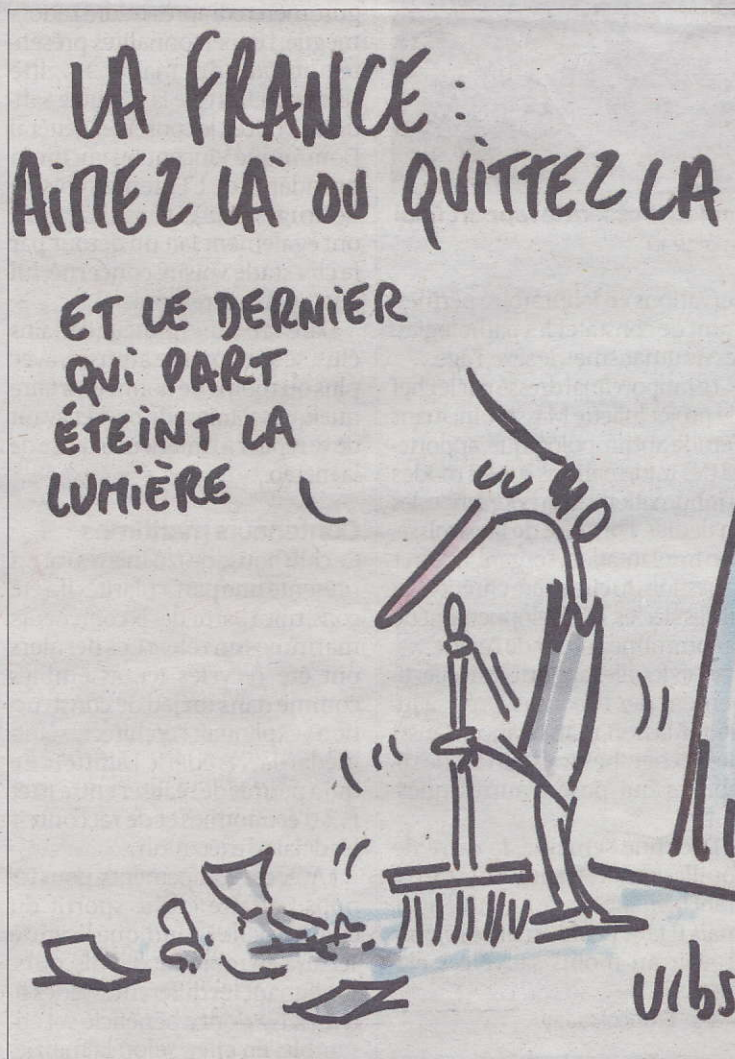 LA FRANCE :
AIMEZ LA OU QUITTEZ LA
ET LE DERNIER
QUI PART
ÉTEINT LA
LUMIÈRE